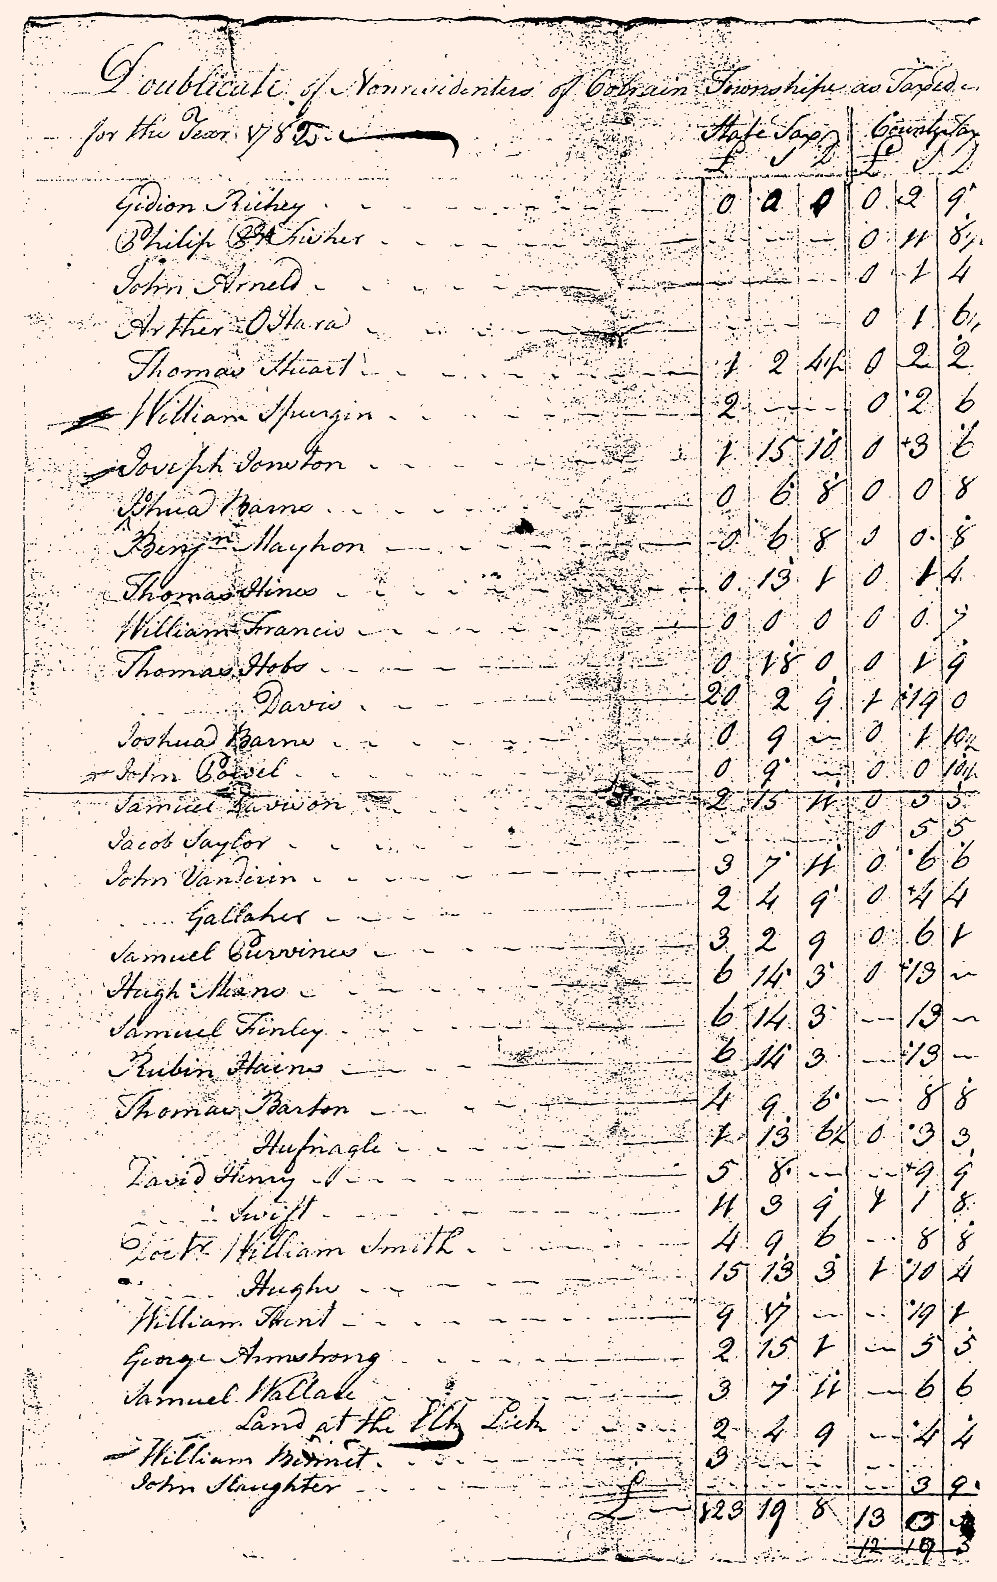 Doublicate of Nonresidenters of Colrain Townships as Taxed
for the Year 1782. State Tax County Tax
£ S D £ S D
Gidion Richey 0 0 0 0 2 9
Philip Fisher 0 11 8½
John Arneld 0 1 4
Arther OHara 0 1 6½
Thomas Stuart 1 2 4½ 0 2 2
William Spurgin 2 0 2 6
Joseph Jonston 1 15 10 0 3 6
Joshua Barns 0 6 8 0 0 8
Benjn Mayhon 0 6 8 0 0 8
Thomas Hines 0 13 1 0 1 4
William Francis 0 0 0 0 0 7
Thomas Hobs 0 18 0 0 1 9
Davis 20 2 9 1 19 0
Joshua Barns 0 9 – 0 1 10½
John Powel 0 9 – 0 0 10½
Samuel Davison 2 15 11 0 5 5
Jacob Saylor 0 5 5
John Vandirin 3 7 11 0 6 6
Gallaher 2 4 9 0 4 4
Samuel Purvines 3 2 9 0 6 1
Hugh Means 6 14 3 0 13 –
Samuel Finley 6 14 3 – 13 –
Rubin Hains 6 14 3 – 13 –
Thomas Barton 4 9 6 – 8 8
Hufnagle 1 13 6½ 0 3 3
David Henry 5 8 – – 9 9
Swift 11 3 9 1 1 8
Doctr William Smith 4 9 6 – 8 8
Hughs 15 13 3 1 10 4
William Hunt 9 17 – – 19 1
George Armstrong 2 15 1 – 5 5
Samuel Wallace 3 7 11 – 6 6
Land at the Elk Lick 2 4 9 – 4 4
William Bennet 3 – – – –
John Slaughter – – – – 3 9
£ 123 19 8 13 3
12 19 3